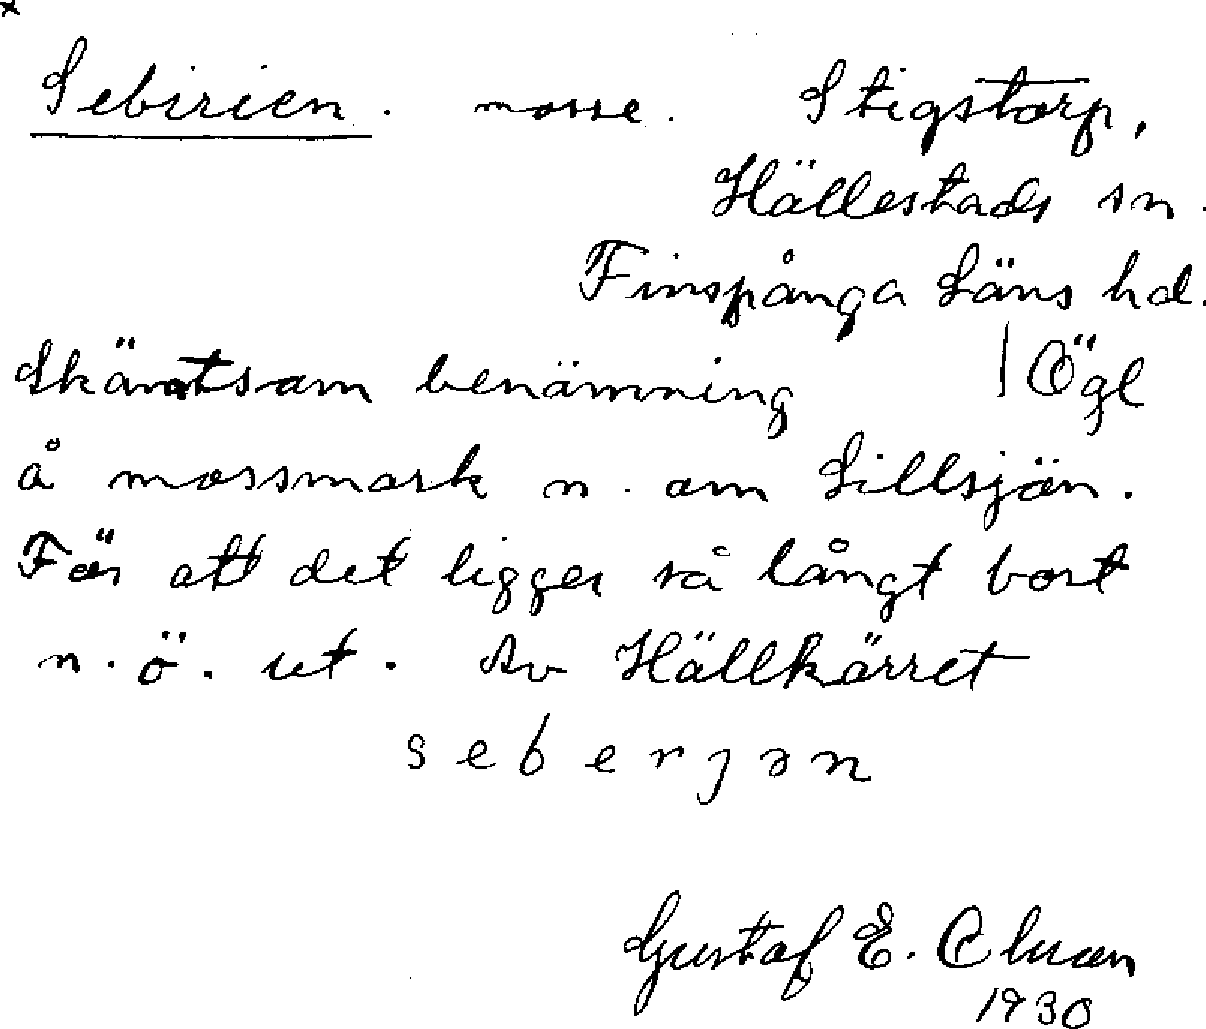 Sebirien. mosse. Stigstorp,
Hällestads sn.
Finspånga Läns hd.
Skämtsam benämning | Ögl
å mossmark n. om Lillsjön.
För att det ligger så långt bort
n. ö. ut. Av Hällkärret
seberjən
Gustaf E. Olsson
1930